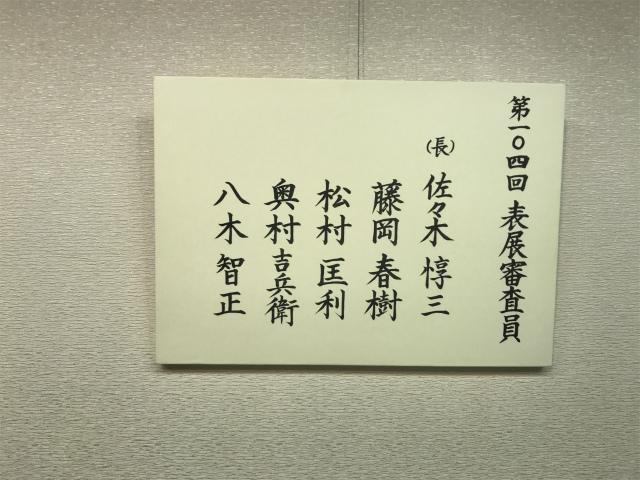 第一〇四回 表展審査員
(長) 佐々木 惇三
藤岡 春樹
松村 匡利
奥村 吉兵衛
八木 智正